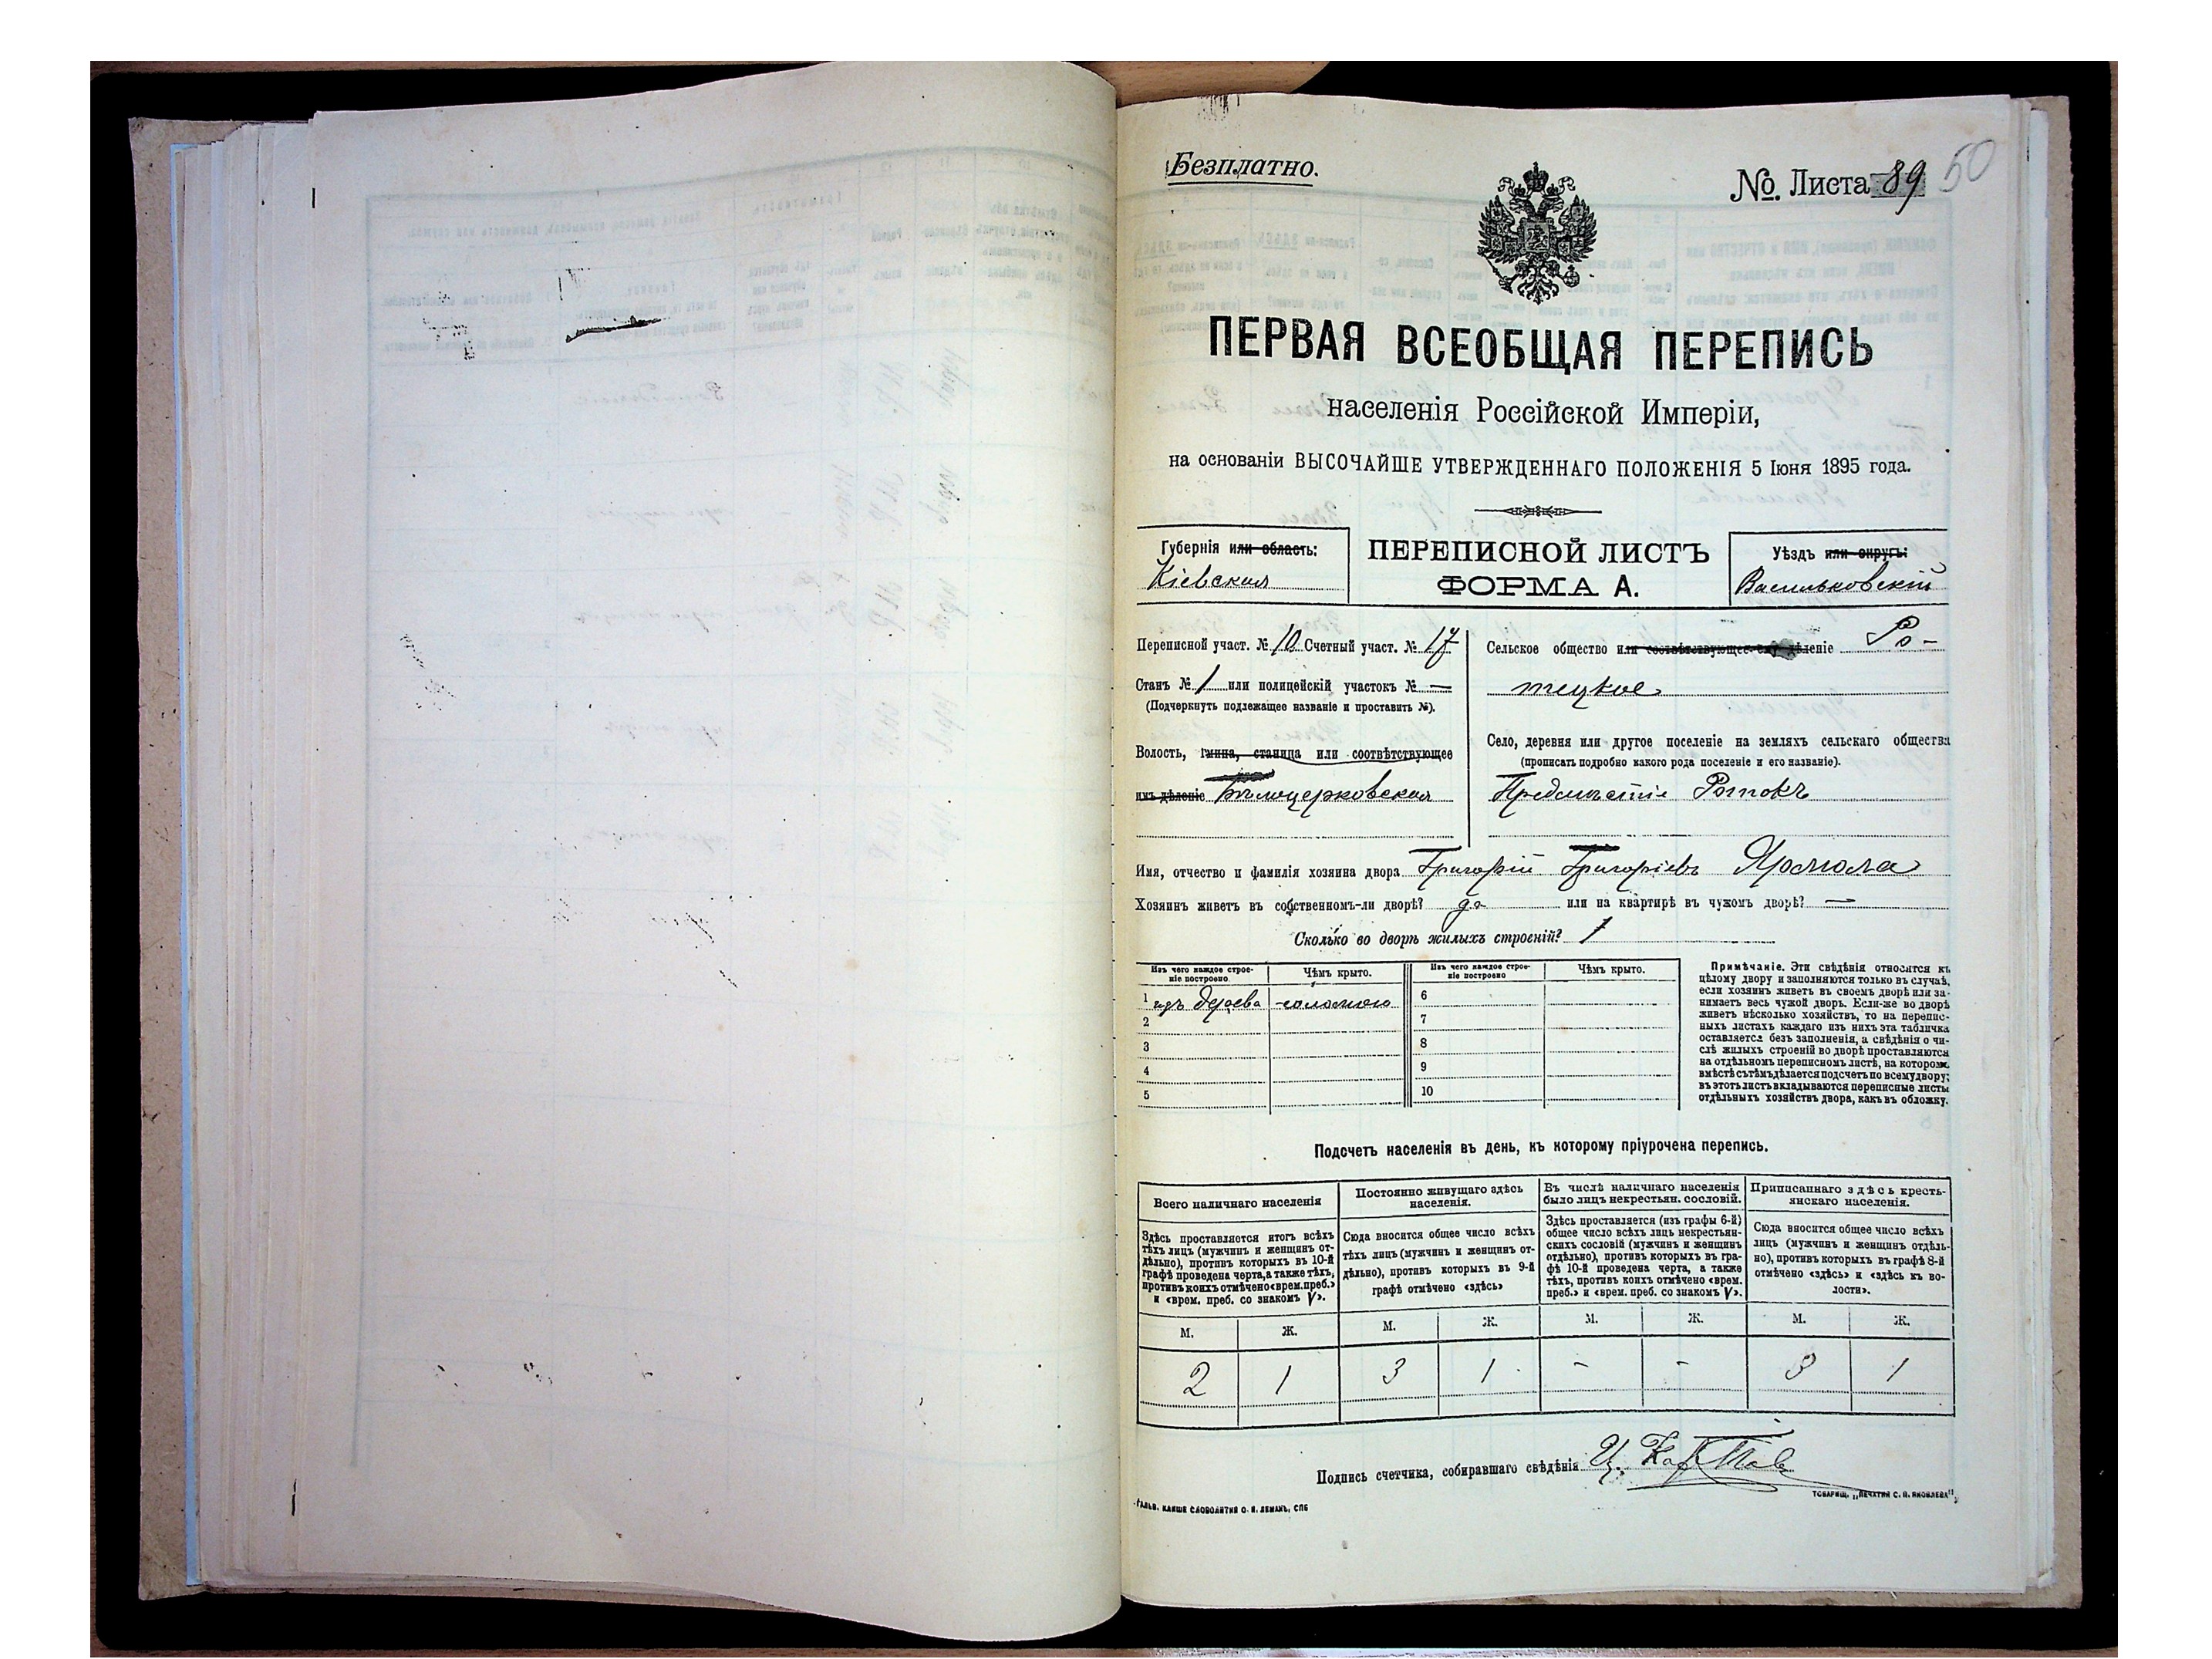 Безплатно.
№ Листа 89 50
ПЕРВАЯ ВСЕОБЩАЯ ПЕРЕПИСЬ
населенія Россійской Имперіи,
на основаніи ВЫСОЧАЙШЕ УТВЕРЖДЕННАГО ПОЛОЖЕНІЯ 5 Іюня 1895 года.
Губернія или область:
Кіевская
ПЕРЕПИСНОЙ ЛИСТЪ
ФОРМА А.
Уѣздъ или округъ:
Васильковскій
Переписной участ. № 10 Счетный участ. № 17
Станъ № 1 или полицейскій участокъ № —
(Подчеркнуть подлежащее названіе и проставить №).
Волость, гмина, станица или соотвѣтствующее
имъ дѣленіе Бѣлоцерковская
Сельское общество или соотвѣтствующее ему дѣленіе Ро-
тецкое
Село, деревня или другое поселеніе на земляхъ сельскаго общества
(прописать подробно какого рода поселеніе и его названіе).
Предмѣстіе Ротокъ
Имя, отчество и фамилія хозяина двора Григорій Григоріевъ Ярмола
Хозяинъ живетъ въ собственномъ-ли дворѣ? да или на квартирѣ въ чужомъ дворѣ? —
Сколько во дворѣ жилыхъ строеній? 1
Изъ чего каждое строе-
ніе построено
Чѣмъ крыто.
Изъ чего каждое строе-
ніе построено
Чѣмъ крыто.
1 изъ дерева соломою
2
3
4
5
6
7
8
9
10
Примѣчаніе. Эти свѣдѣнія относятся къ
цѣлому двору и заполняются только въ случаѣ,
если хозяинъ живетъ въ своемъ дворѣ или за-
нимаетъ весь чужой дворъ. Если-же во дворѣ
живетъ нѣсколько хозяйствъ, то на перепис-
ныхъ листахъ каждаго изъ нихъ эта табличка
оставляется безъ заполненія, а свѣдѣнія о чи-
слѣ жилыхъ строеній во дворѣ проставляются
на отдѣльномъ переписномъ листѣ, на которомъ
вмѣстѣ съ тѣмъ дѣлается подсчетъ по всему двору;
въ этотъ листъ вкладываются переписные листы
отдѣльныхъ хозяйствъ двора, какъ въ обложку.
Подсчетъ населенія въ день, къ которому пріурочена перепись.
Всего наличнаго населенія
Здѣсь проставляется итогъ всѣхъ
тѣхъ лицъ (мужчинъ и женщинъ от-
дѣльно), противъ которыхъ въ 10-й
графѣ проведена черта, а также тѣхъ,
противъ коихъ отмѣчено «врем. преб.»
и «врем. преб. со знакомъ V».
Постоянно живущаго здѣсь
населенія.
Сюда вносится общее число всѣхъ
тѣхъ лицъ (мужчинъ и женщинъ от-
дѣльно), противъ которыхъ въ 9-й
графѣ отмѣчено «здѣсь»
Въ числѣ наличнаго населенія
было лицъ некрестьян. сословій.
Здѣсь проставляется (изъ графы 6-й)
общее число всѣхъ лицъ некрестьян-
скихъ сословій (мужчинъ и женщинъ
отдѣльно), противъ которыхъ въ гра-
фѣ 10-й проведена черта, а также
тѣхъ, противъ коихъ отмѣчено «врем.
преб.» и «врем. преб. со знакомъ V».
Приписаннаго здѣсь кресть-
янскаго населенія.
Сюда вносится общее число всѣхъ
лицъ (мужчинъ и женщинъ отдѣль-
но), противъ которыхъ въ графѣ 8-й
отмѣчено «здѣсь» и «здѣсь къ во-
лости».
М. Ж. М. Ж. М. Ж. М. Ж.
2 1 3 1 - - 3 1
Подпись счетчика, собиравшаго свѣдѣнія
ГАЛЬВ. КЛИШЕ СЛОВОЛИТНИ О. И. ЛЕМАНЪ, СПБ
ТОВАРИЩ. „ПЕЧАТНЯ С. П. ЯКОВЛЕВА"